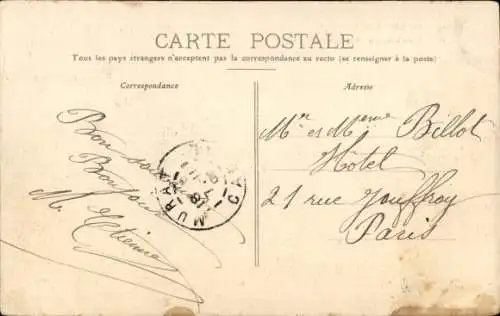 CARTE POSTALE
Tous les pays étrangers n'acceptent pas la correspondance au recto (se renseigner à la poste)
Correspondance
Adresse
Bon
Bonjour
M. Etienne
MURAT
Mr et Meme Billot
Hôtel
21 rue Jouffroy
Paris